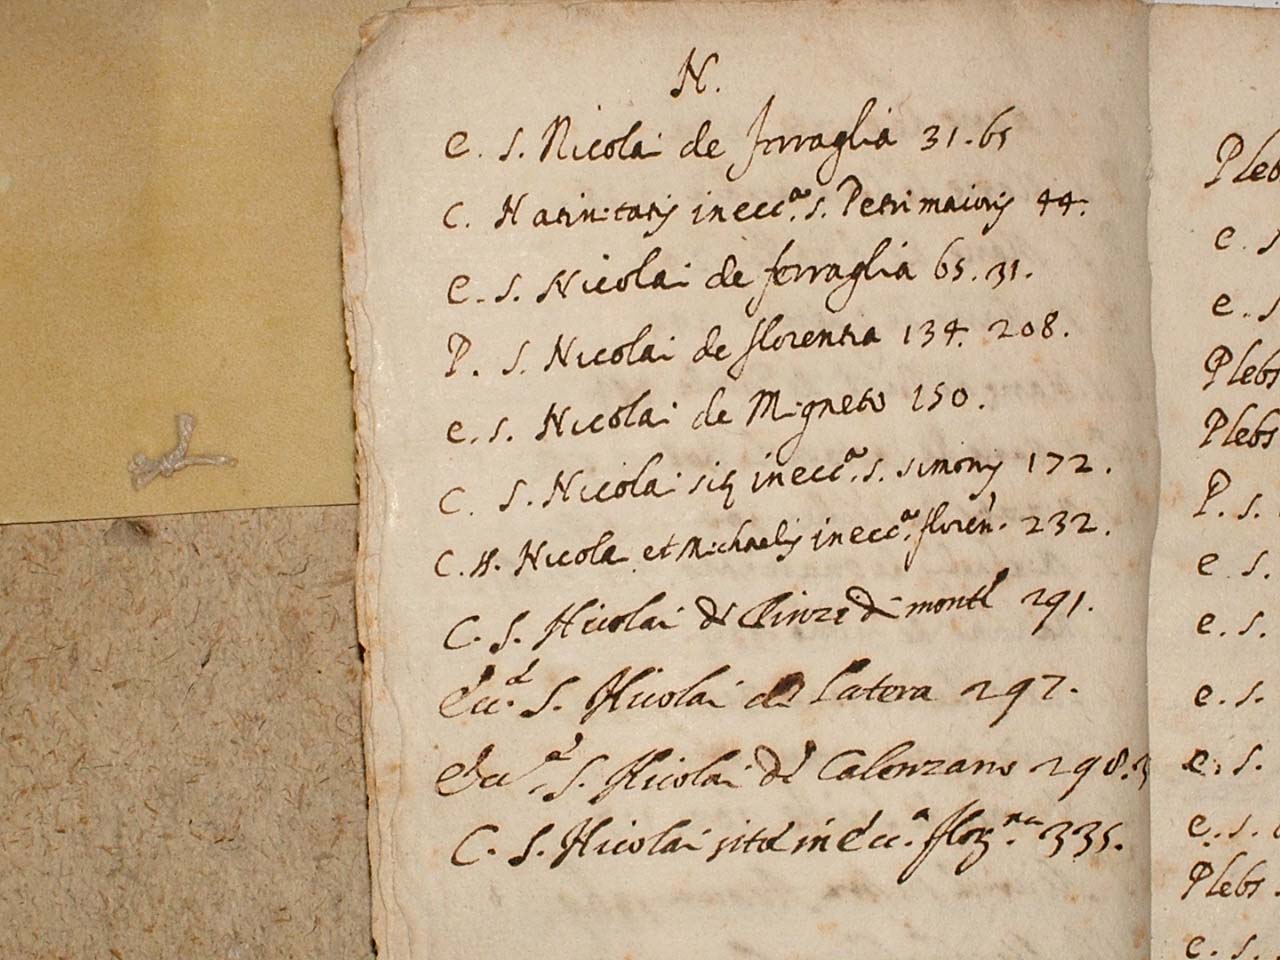 N.
e. S. Nicolai de ferraglia 31. 65
C. Natiuitatis in eccª. S. Petri maioris 44.
e. S. Nicolai de ferraglia 65. 31.
P. S. Nicolai de florentia 134. 208.
e. S. Nicolai de Migneto 150.
C. S. Nicolai in eccª. S. Simonis 172.
C. Nicolai et Michaelis in eccª. floren. 232.
C. S. Nicolai 291.
S. Nicolai de Latera 297.
S. Nicolai de Calenzano 298.
C. S. Nicolai in 335.
Plebs
e. S
e. S
Plebs
Plebs
P. S.
e S.
e. S.
e. S.
e. S.
e. S.
Plebs
e. S.